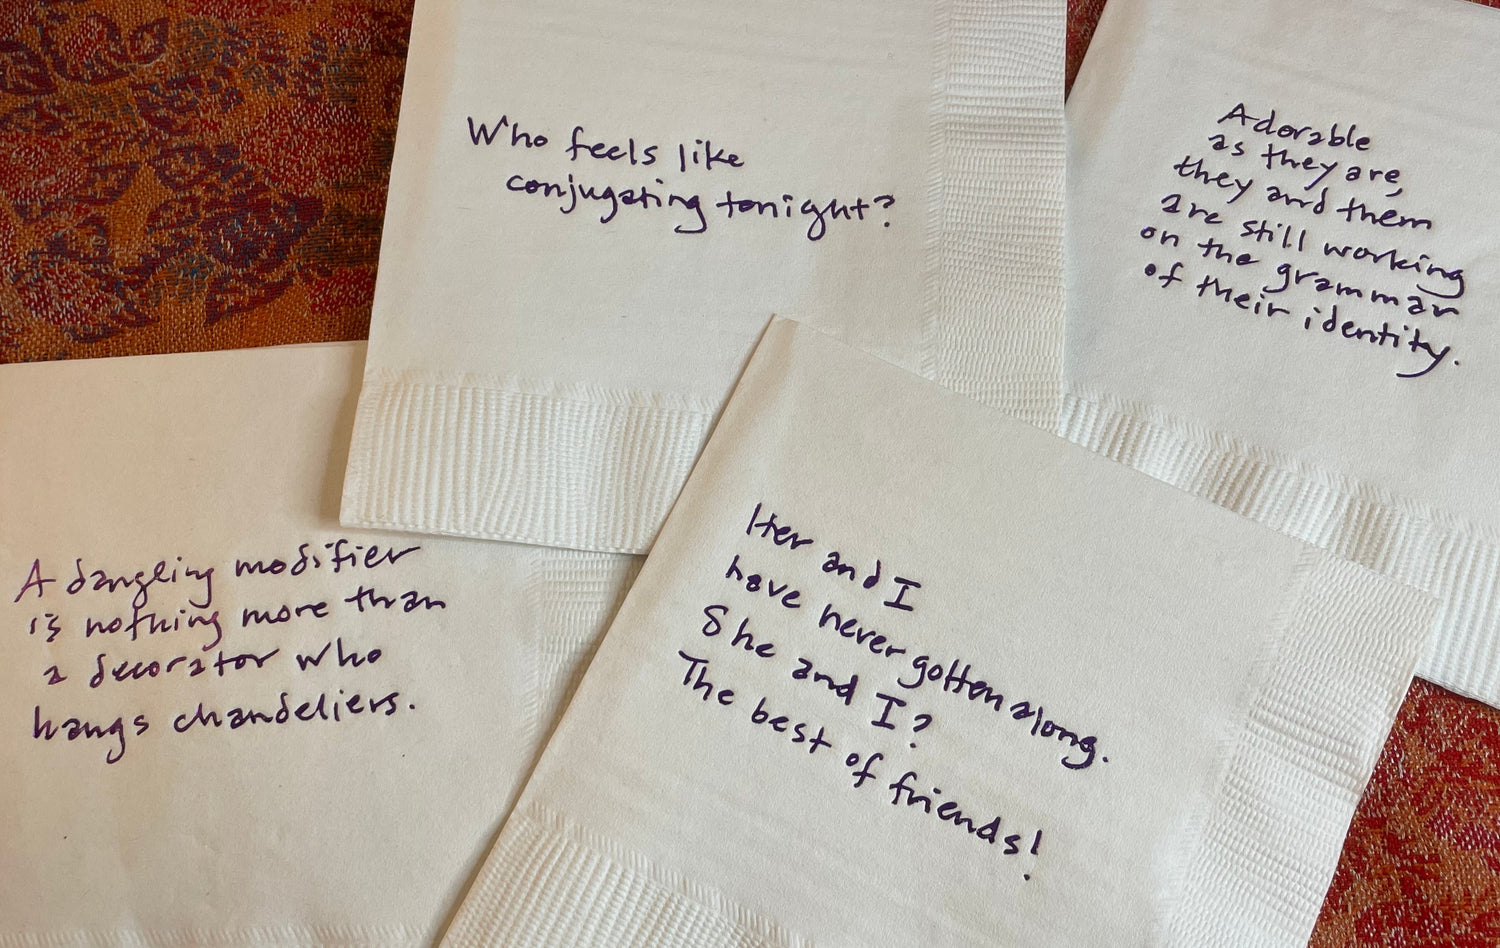 Who feels like
conjugating tonight?
Adorable
as they are,
they and them
are still working
on the grammar
of their identity.
A dangling modifier
is nothing more than
a decorator who
hangs chandeliers.
Her and I
have never gotten along.
She and I?
The best of friends!